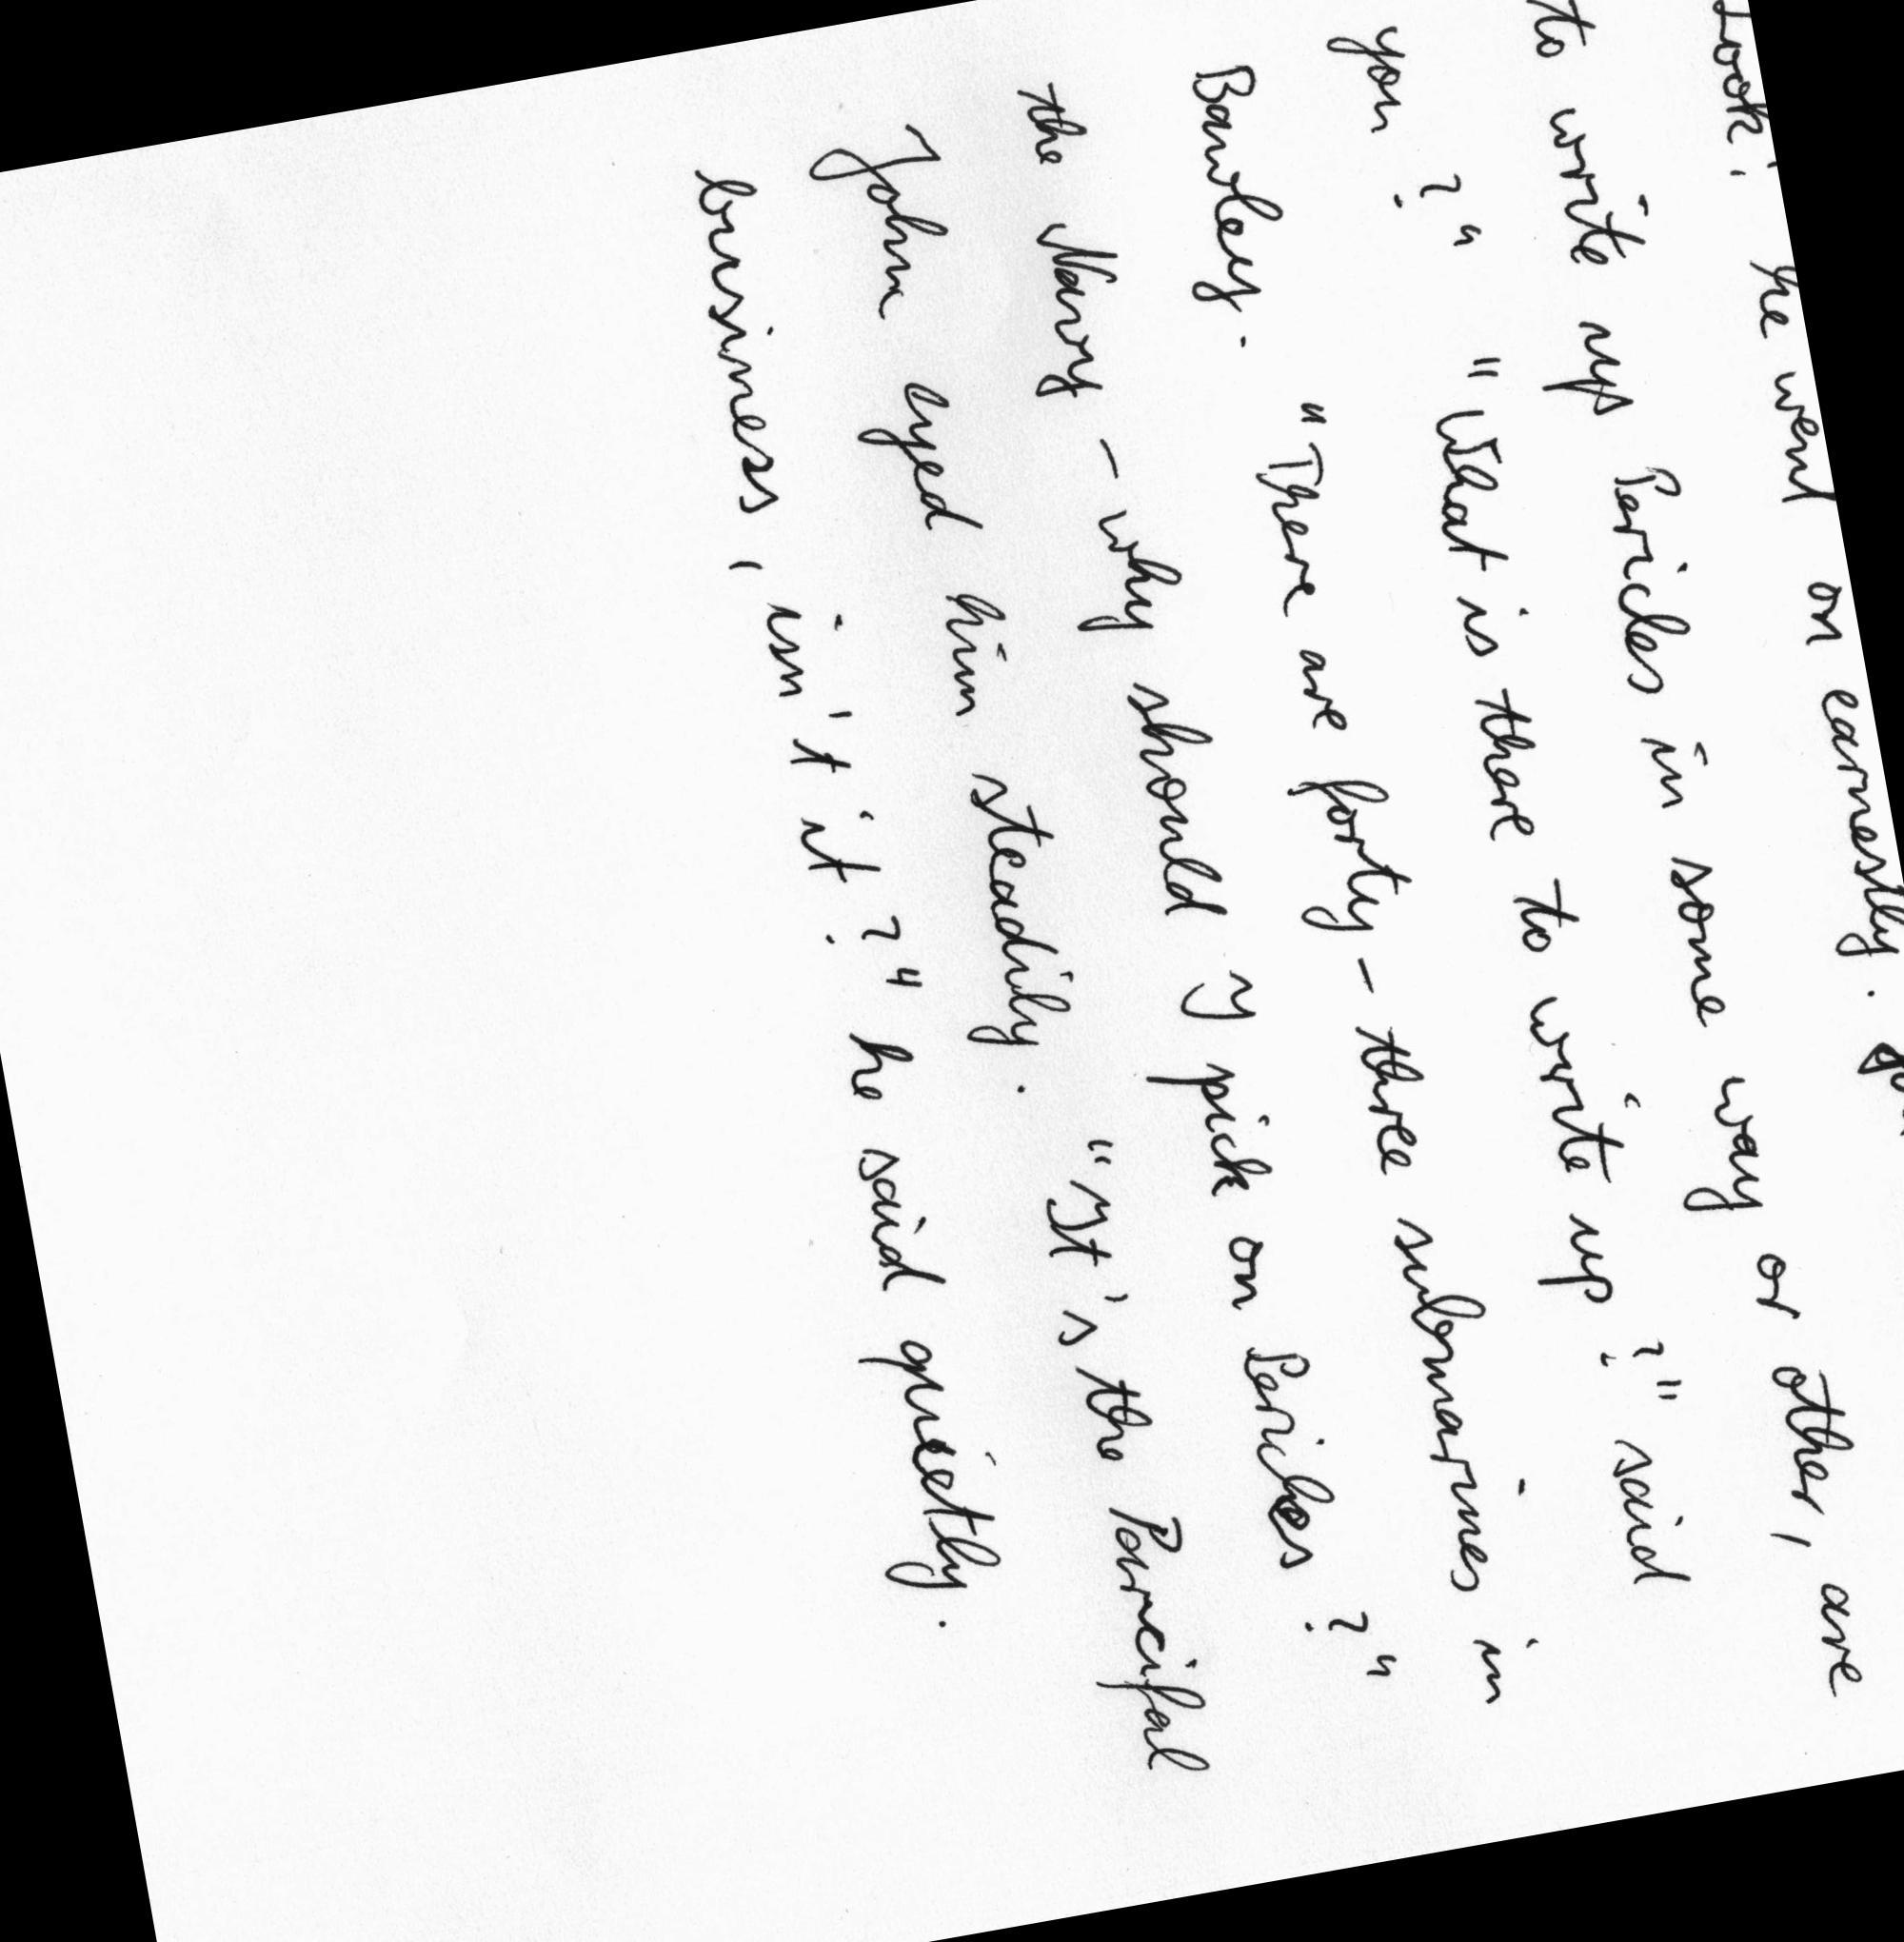 Look, he went on earnestly.
to write up Pericles in some way or other, are
you?" "What is there to write up?" said
Bawley. "There are forty-three submarines in
the Navy - why should I pick on Pericles?"
John eyed him steadily. "It's the Parcifal
business, isn't it?" he said quietly.